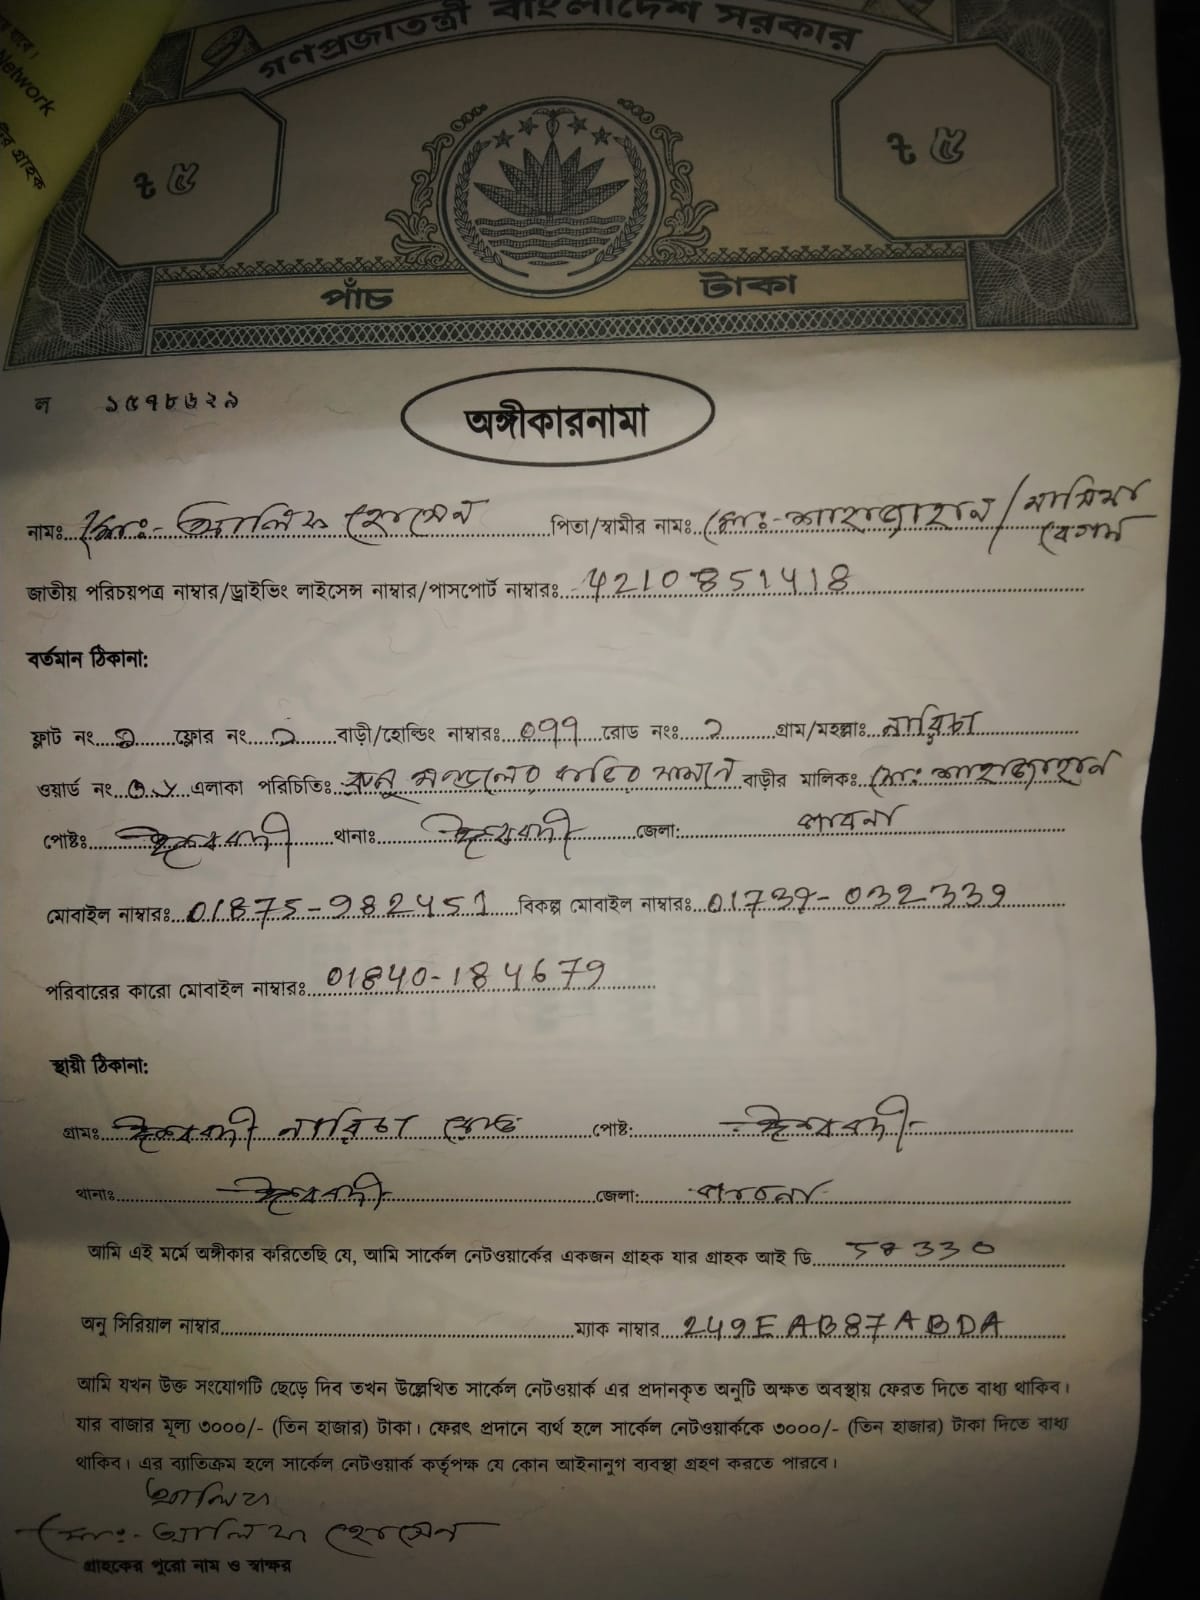 Network
র গ্রাহক
গণপ্রজাতন্ত্রী বাংলাদেশ সরকার
৳ ৫
৳ ৫
পাঁচ টাকা
ল ১৫৭৮৬২৯
অঙ্গীকারনামা
নামঃ মোঃ- আলিফ হোসেন পিতা/স্বামীর নামঃ মোঃ-শাহাজাহান / নাসিমা
বেগম
জাতীয় পরিচয়পত্র নাম্বার/ড্রাইভিং লাইসেন্স নাম্বার/পাসপোর্ট নাম্বারঃ 4210851418
বর্তমান ঠিকানা:
ফ্লাট নং ফ্লোর নং বাড়ী/হোল্ডিং নাম্বারঃ ০৭৭ রোড নংঃ ২ গ্রাম/মহল্লাঃ নারিচা
ওয়ার্ড নং এলাকা পরিচিতিঃ মন্ডলের বাড়ির সামনে বাড়ীর মালিকঃ মোঃ শাহাজাহান
পোষ্টঃ ঈশ্বরদী থানাঃ ঈশ্বরদী জেলা: পাবনা
মোবাইল নাম্বারঃ 01875-982451 বিকল্প মোবাইল নাম্বারঃ 01739-032339
পরিবারের কারো মোবাইল নাম্বারঃ 01840-184679
স্থায়ী ঠিকানা:
গ্রামঃ ঈশ্বরদী নারিচা রোড পোষ্ট: ঈশ্বরদী
থানাঃ ঈশ্বরদী জেলা: পাবনা
আমি এই মর্মে অঙ্গীকার করিতেছি যে, আমি সার্কেল নেটওয়ার্কের একজন গ্রাহক যার গ্রাহক আই ডি 58330
অনু সিরিয়াল নাম্বার ম্যাক নাম্বার 249EAB87ABDA
আমি যখন উক্ত সংযোগটি ছেড়ে দিব তখন উল্লেখিত সার্কেল নেটওয়ার্ক এর প্রদানকৃত অনুটি অক্ষত অবস্থায় ফেরত দিতে বাধ্য থাকিব।
যার বাজার মূল্য ৩০০০/- (তিন হাজার) টাকা। ফেরৎ প্রদানে ব্যর্থ হলে সার্কেল নেটওয়ার্ককে ৩০০০/- (তিন হাজার) টাকা দিতে বাধ্য
থাকিব। এর ব্যতিক্রম হলে সার্কেল নেটওয়ার্ক কর্তৃপক্ষ যে কোন আইনানুগ ব্যবস্থা গ্রহণ করতে পারবে।
আলিফ
মোঃ- আলিফ হোসেন
গ্রাহকের পুরো নাম ও স্বাক্ষর